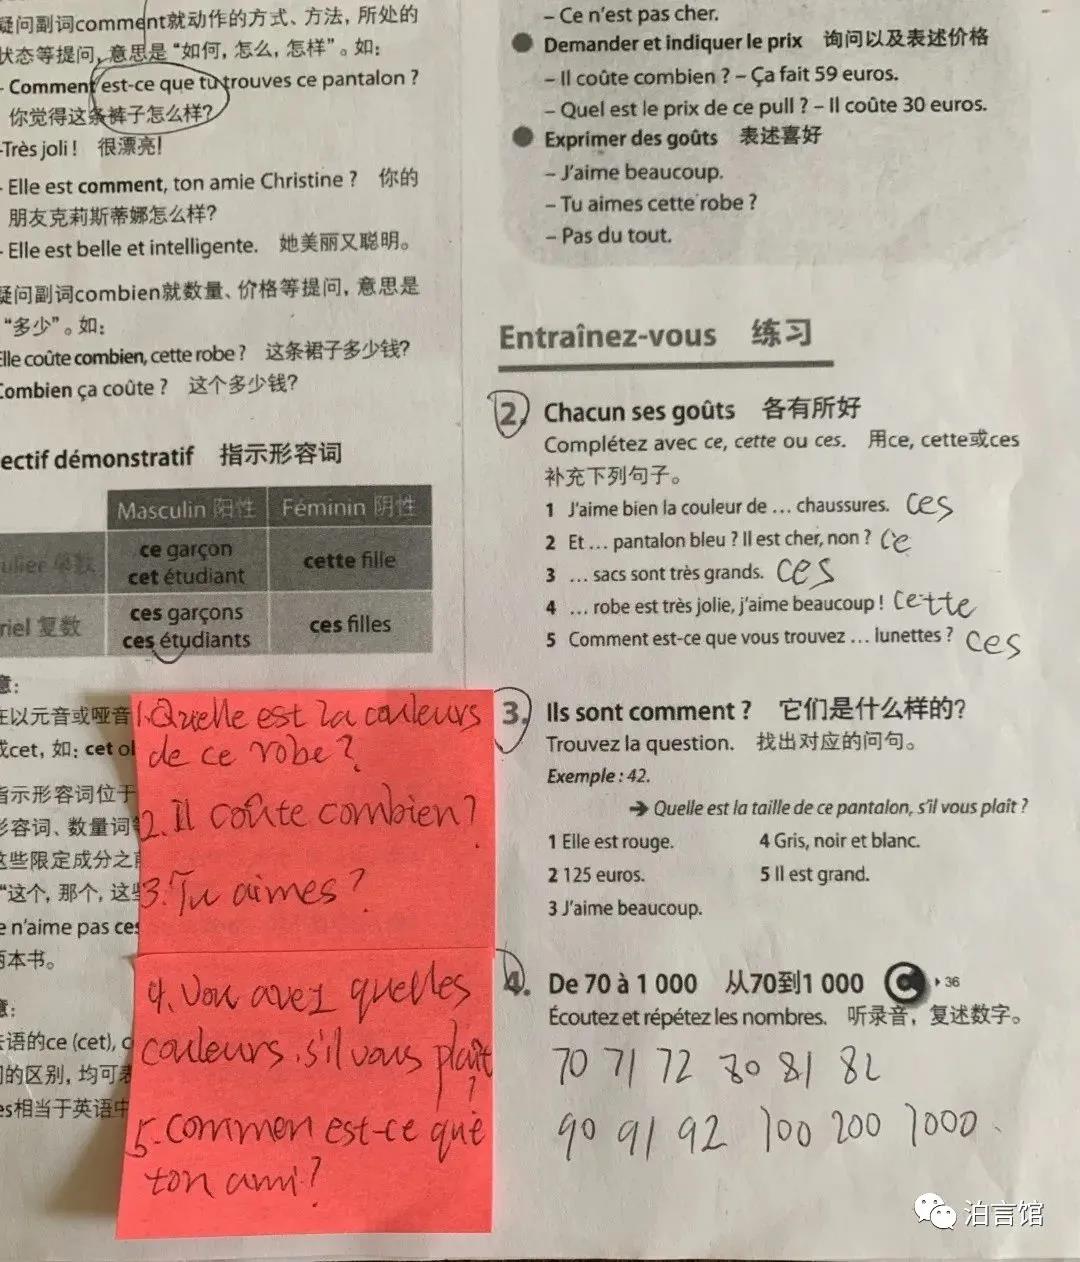 疑问副词comment就动作的方式、方法，所处的
状态等提问，意思是“如何，怎么，怎样”。如：
- Comment est-ce que tu trouves ce pantalon ?
你觉得这条裤子怎么样？
-Très joli !  很漂亮！
- Elle est comment, ton amie Christine ?  你的
朋友克莉斯蒂娜怎么样？
- Elle est belle et intelligente.  她美丽又聪明。
疑问副词combien就数量、价格等提问，意思是
“多少”。如：
Elle coûte combien, cette robe ?  这条裙子多少钱？
Combien ça coûte ?  这个多少钱？
ectif démonstratif  指示形容词
Masculin 阳性  Féminin 阴性
ulier 单数
ce garçon
cet étudiant
cette fille
riel 复数
ces garçons
ces étudiants
ces filles
意：
在以元音或哑音
成cet，如：cet ol
指示形容词位于
形容词、数量词等
这些限定成分之前
“这个，那个，这些
e n'aime pas ces
两本书。
意：
法语的ce (cet), c
间的区别，均可表
es相当于英语中
1.Quelle est la couleurs
de ce robe?
2.Il coûte combien?
3.Tu aimes?
4.Vou avez quelles
couleurs, s'il vous plaît
?
5.Commen est-ce que
ton ami?
– Ce n'est pas cher.
Demander et indiquer le prix  询问以及表述价格
– Il coûte combien ? – Ça fait 59 euros.
– Quel est le prix de ce pull ? – Il coûte 30 euros.
Exprimer des goûts  表述喜好
– J'aime beaucoup.
– Tu aimes cette robe ?
– Pas du tout.
Entraînez-vous  练习
2. Chacun ses goûts  各有所好
Complétez avec ce, cette ou ces.  用ce, cette或ces
补充下列句子。
1 J'aime bien la couleur de … chaussures. ces
2 Et … pantalon bleu ? Il est cher, non ? ce
3 … sacs sont très grands. ces
4 … robe est très jolie, j'aime beaucoup ! cette
5 Comment est-ce que vous trouvez … lunettes ? ces
3. Ils sont comment ?  它们是什么样的？
Trouvez la question.  找出对应的问句。
Exemple : 42.
➔ Quelle est la taille de ce pantalon, s'il vous plaît ?
1 Elle est rouge.  4 Gris, noir et blanc.
2 125 euros.  5 Il est grand.
3 J'aime beaucoup.
4. De 70 à 1 000  从70到1 000  36
Écoutez et répétez les nombres.  听录音，复述数字。
70 71 72 80 81 82
90 91 92 100 200 1000
泊言馆